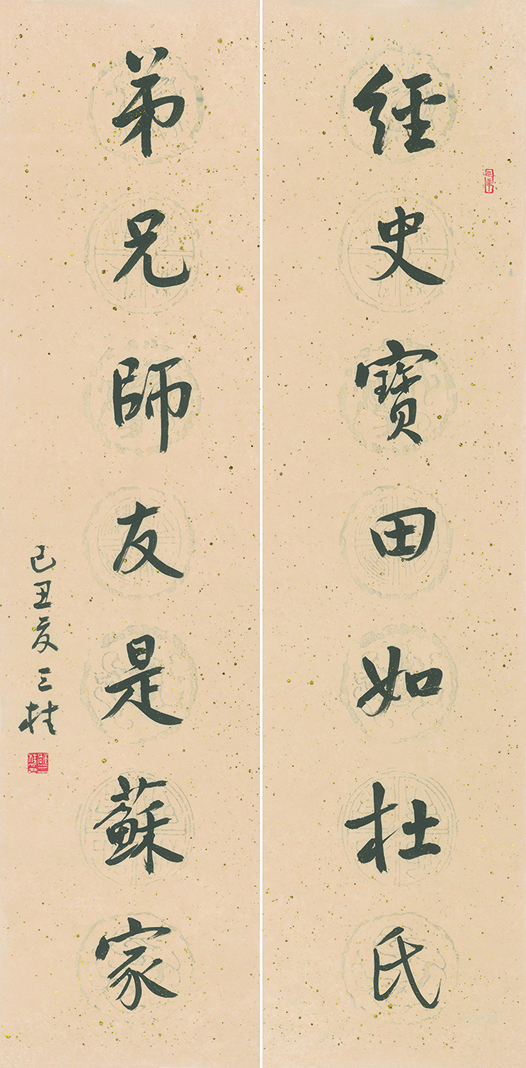 經史寶田如杜氏
弟兄師友是蘇家
己丑夏三桂